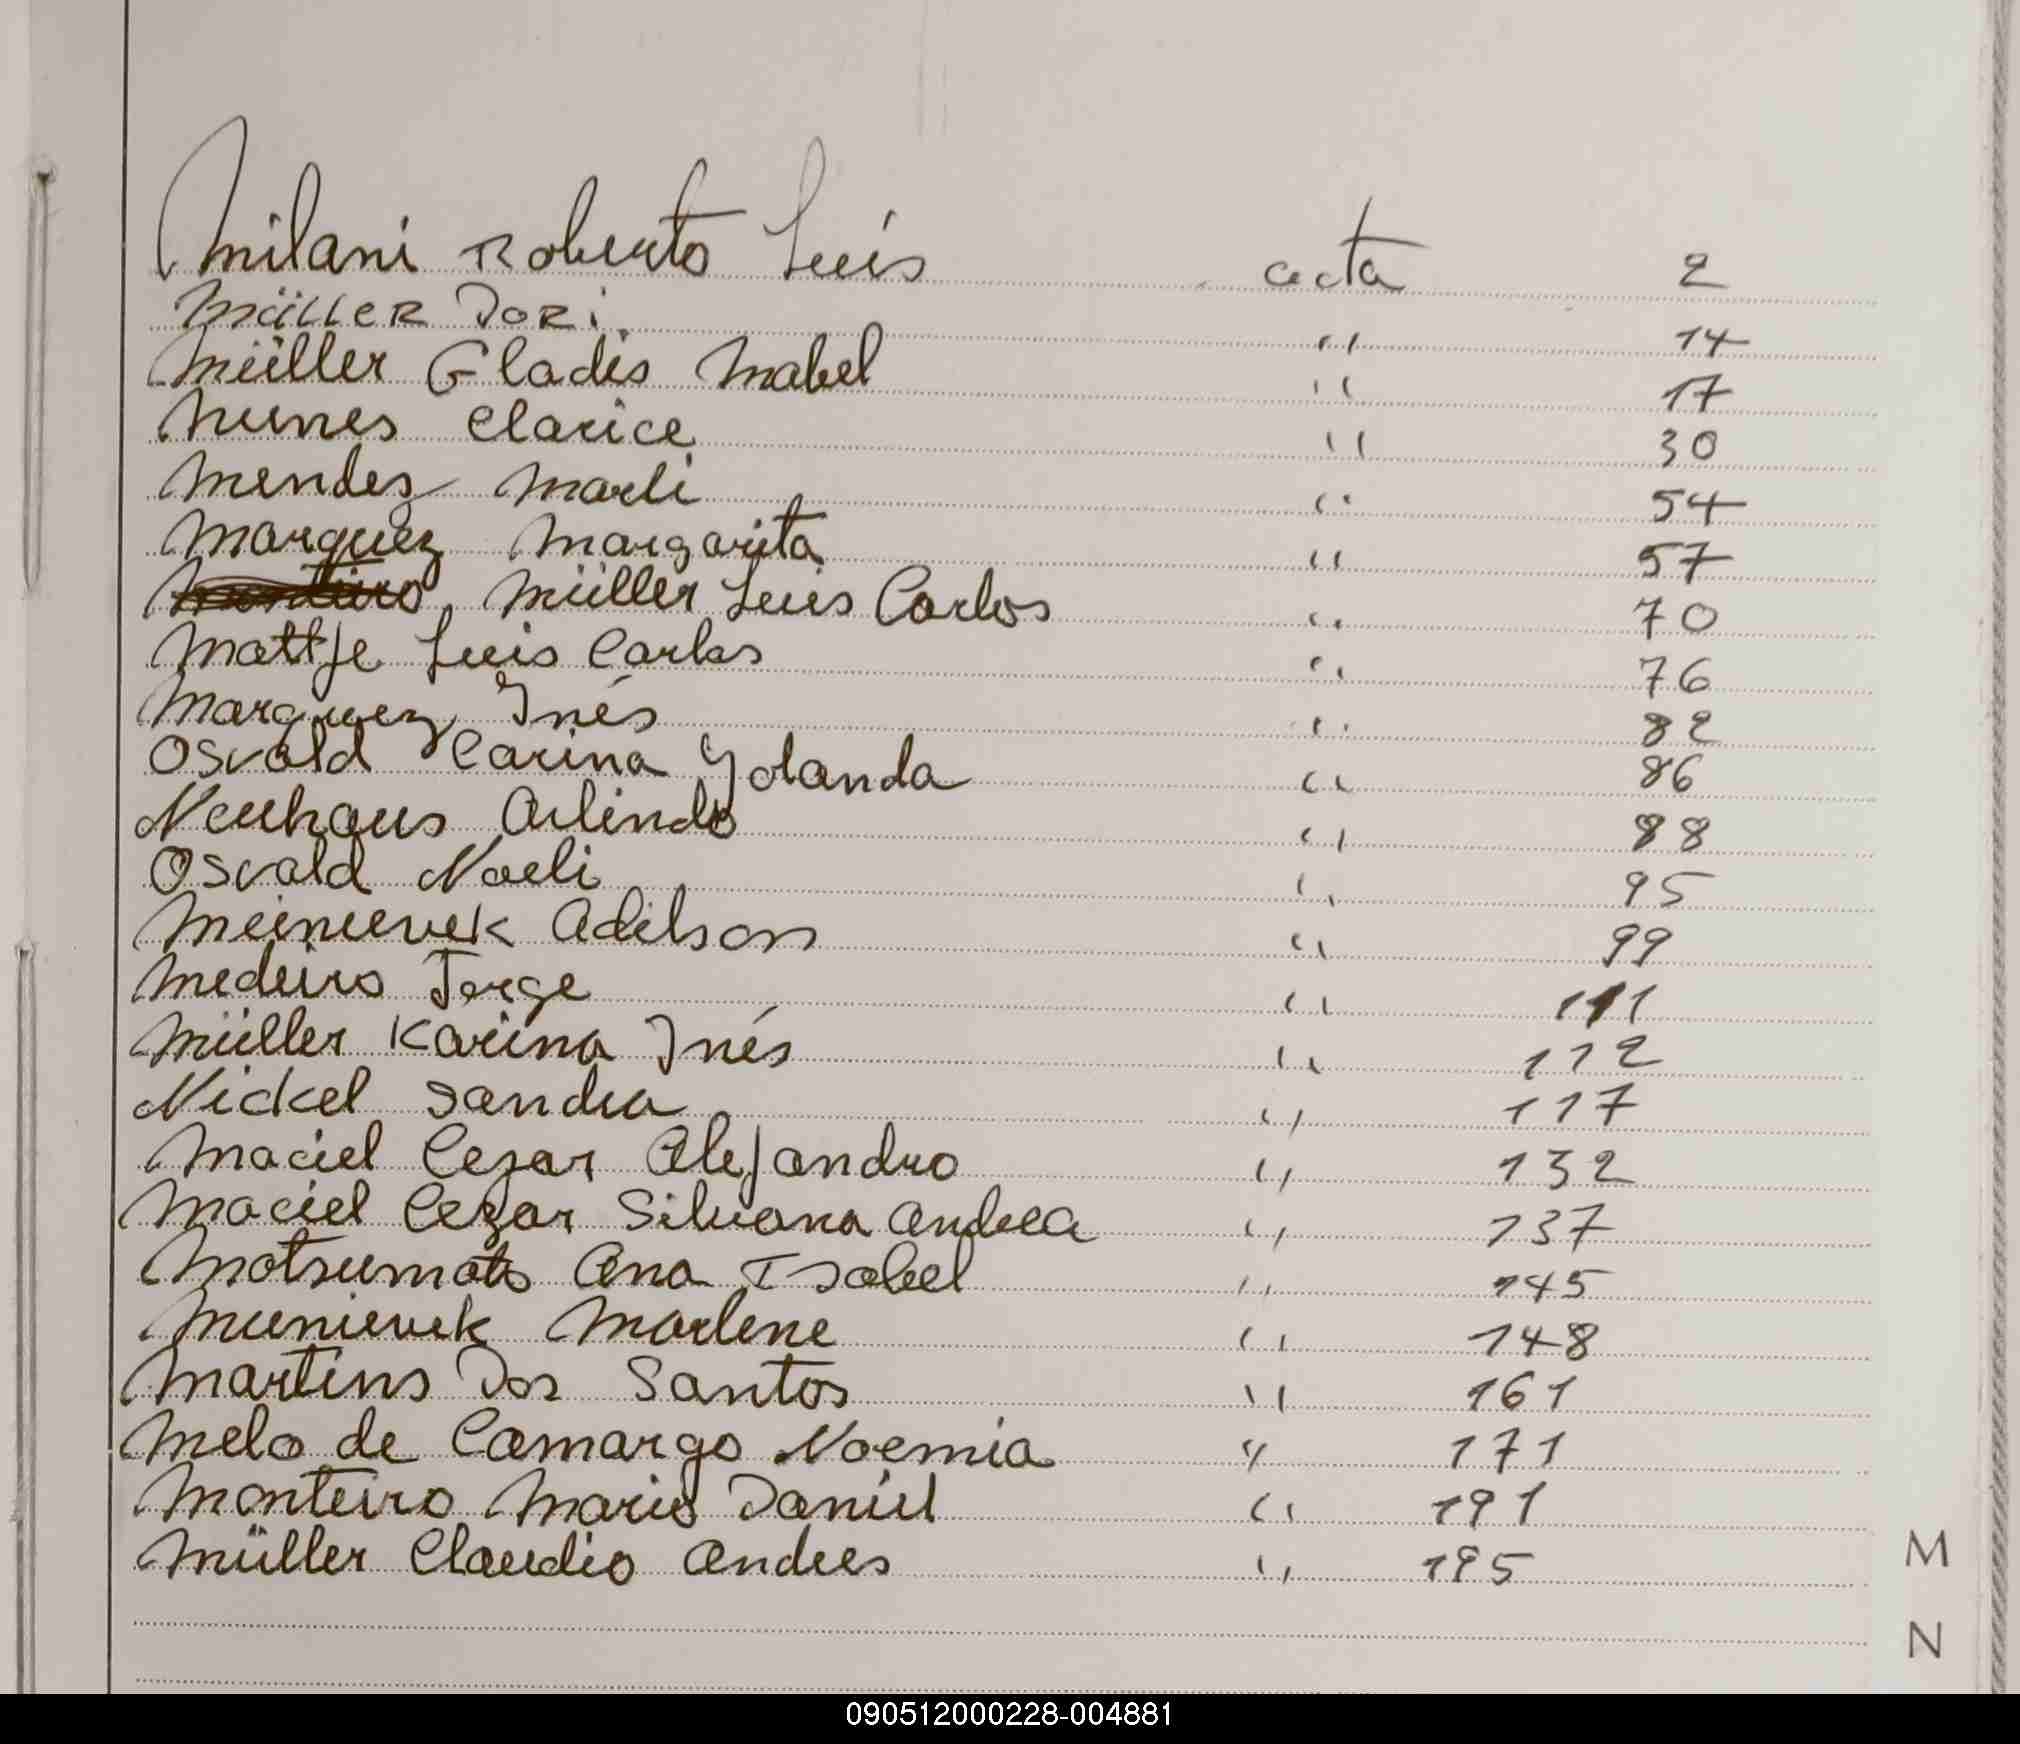 Milani Roberto Luis acta 2
Müller Dori. " 14
Müller Gladis Mabel " 17
Nunes Clarice " 30
Mendez Marli " 54
Marquez Margarita " 57
Müller Luis Carlos " 70
Mattje Luis Carlos " 76
Marquez Inés " 82
Osvald Carina Yolanda " 86
Neuhaus Arlindo " 88
Osvald Noeli " 95
Adilson " 99
Medeiro Jorge " 111
Müller Karina Inés " 112
Nickel Sandra " 117
Maciel Cezar Alejandro " 132
Maciel Cezar Silvana Andrea " 137
Matsumoto Ana Isabel " 145
Marlene " 148
Martins Dos Santos " 161
Melo de Camargo Noemia " 171
Monteiro Mario Daniel " 191
Müller Claudio Andres " 195
M
N
090512000228-004881